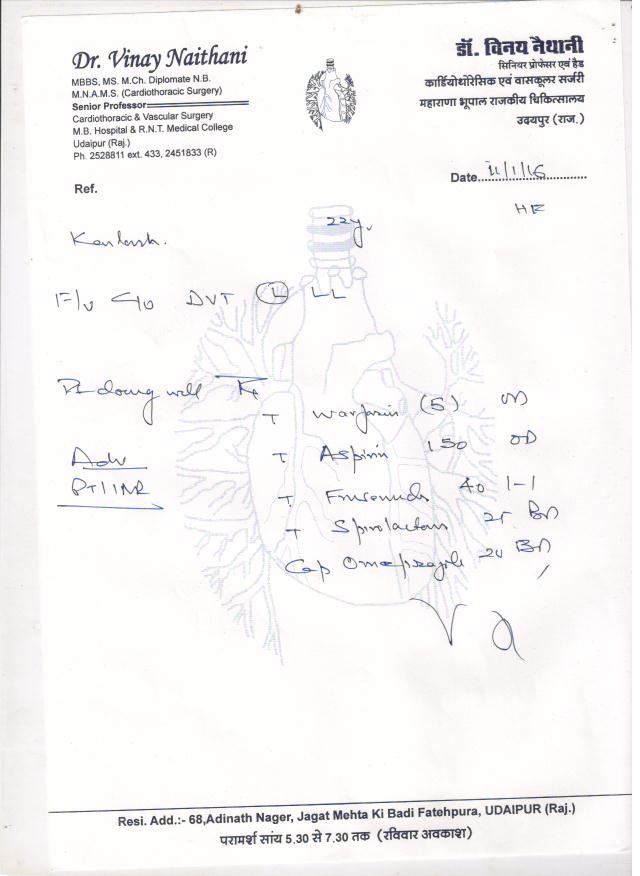 Dr. Vinay Naithani
MBBS, MS. M.Ch. Diplomate N.B.
M.N.A.M.S. (Cardiothoracic Surgery)
Senior Professor
Cardiothoracic & Vascular Surgery
M.B. Hospital & R.N.T. Medical College
Udaipur (Raj.)
Ph. 2528811 ext. 433, 2451833 (R)
डॉ. विनय नैथानी
सिनियर प्रोफेसर एवं हैड
कार्डियोथोरेसिक एवं वासकूलर सर्जरी
महाराणा भूपाल राजकीय चिकित्सालय
उदयपुर (राज.)
Date 11/1/16
Ref.
22y
DVT (L) LL
Pt doing well
T Warfarin (5) OD
Adv
T Aspirin 150 OD
PT/INR
T 40 1-1
T Spirolactam 25 BD
Cap Omeprazole 20 BD
Resi. Add.:- 68,Adinath Nager, Jagat Mehta Ki Badi Fatehpura, UDAIPUR (Raj.)
परामर्श सांय 5.30 से 7.30 तक (रविवार अवकाश)